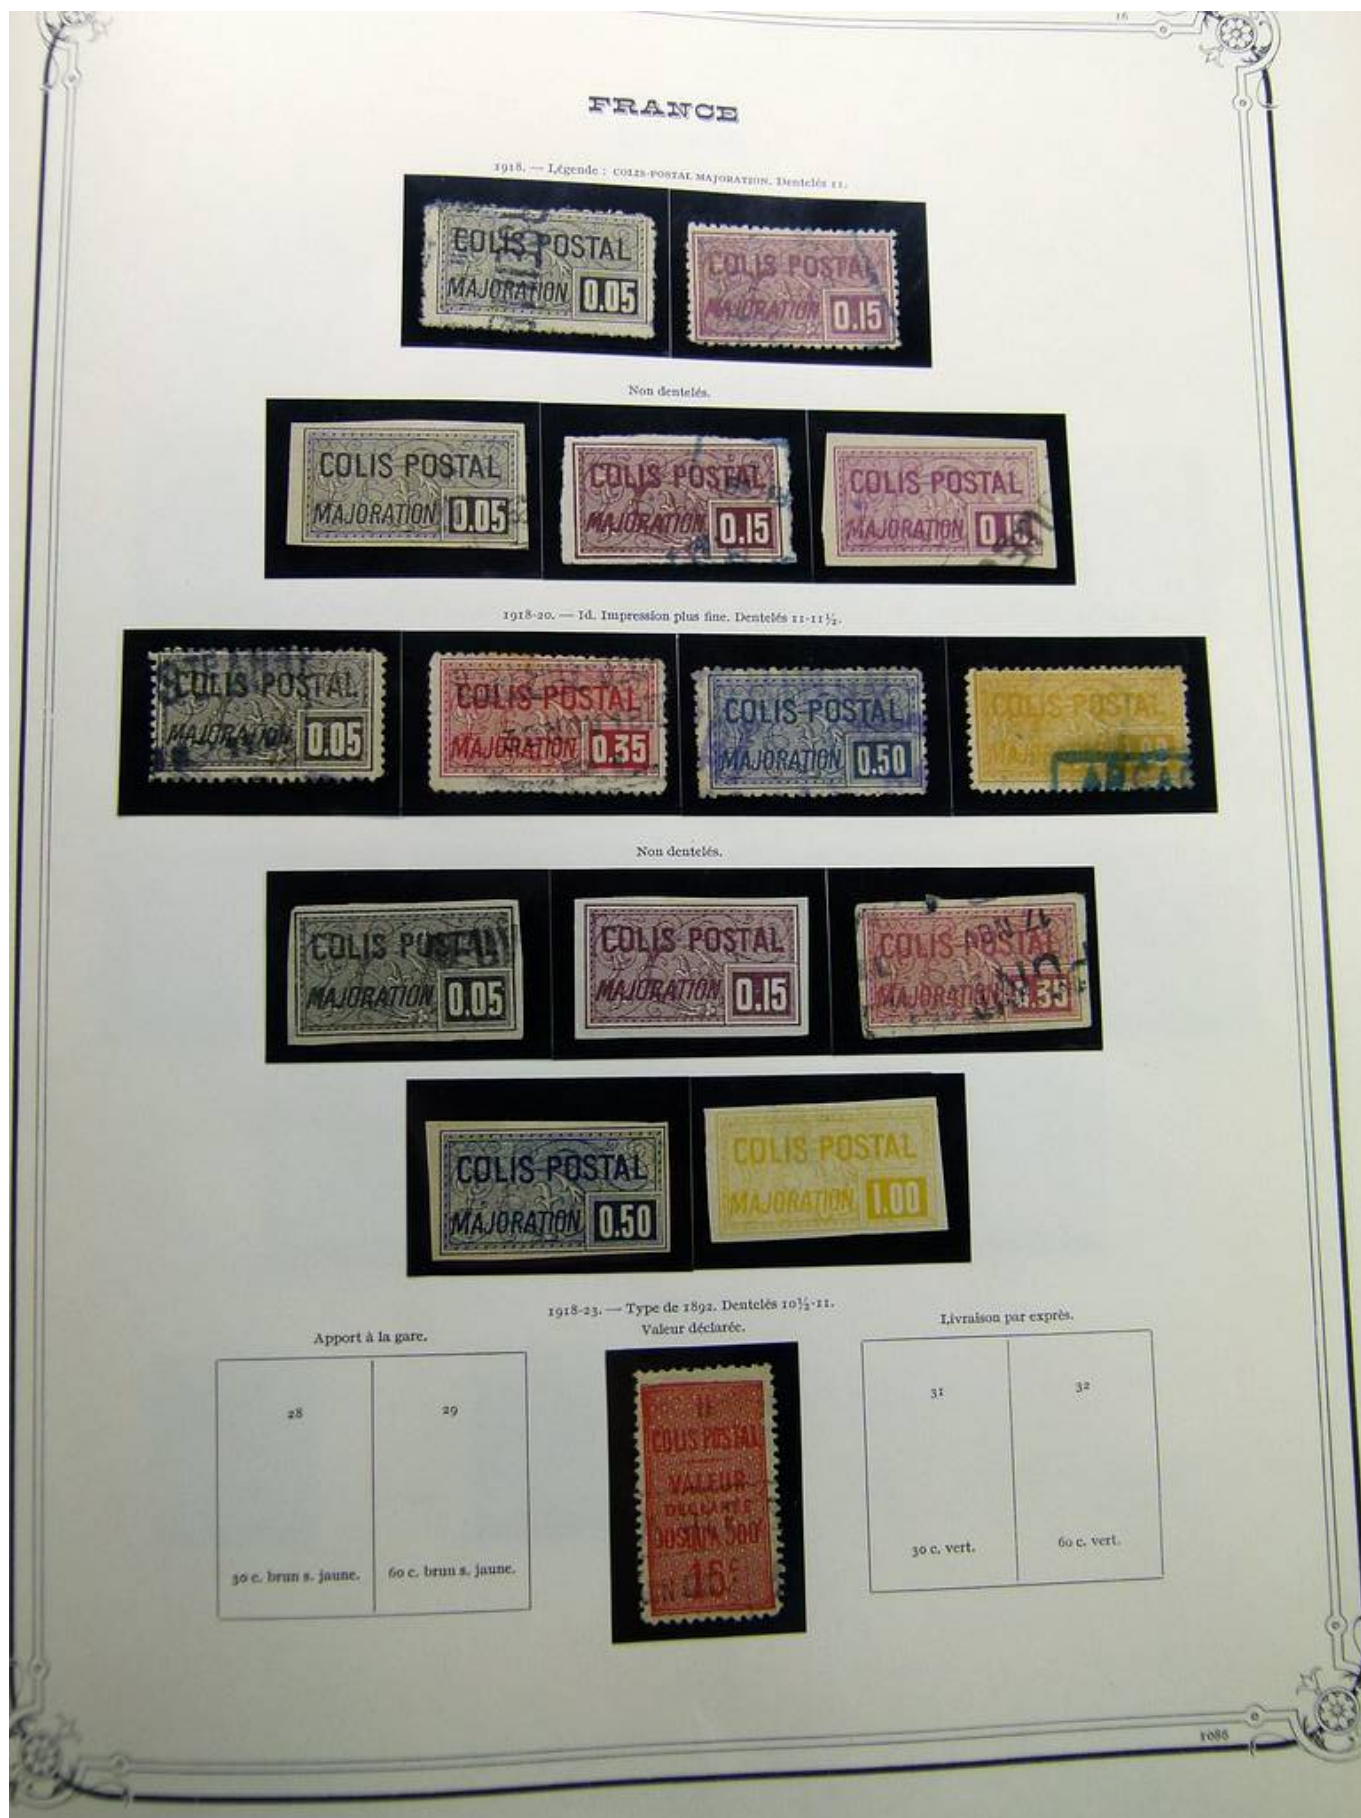 16
FRANCE
1918. — Légende : COLIS-POSTAL MAJORATION. Dentelés 11.
COLIS POSTAL
MAJORATION 0.05
COLIS POSTAL
MAJORATION 0.15
Non dentelés.
COLIS POSTAL
MAJORATION 0.05
COLIS POSTAL
MAJORATION 0.15
COLIS POSTAL
MAJORATION 0.15
1918-20. — Id. Impression plus fine. Dentelés 11-11½.
COLIS POSTAL
MAJORATION 0.05
COLIS POSTAL
MAJORATION 0.35
COLIS POSTAL
MAJORATION 0.50
COLIS POSTAL
MAJORATION 1.00
Non dentelés.
COLIS POSTAL
MAJORATION 0.05
COLIS POSTAL
MAJORATION 0.15
COLIS POSTAL
MAJORATION 0.35
COLIS POSTAL
MAJORATION 0.50
COLIS POSTAL
MAJORATION 1.00
1918-23. — Type de 1892. Dentelés 10½-11.
Apport à la gare.
Valeur déclarée.
Livraison par exprès.
28
29
30 c. brun s. jaune.
60 c. brun s. jaune.
COLIS POSTAL
VALEUR
DÉCLARÉE
JUSQU'A 500
15c
31
32
30 c. vert.
60 c. vert.
1086